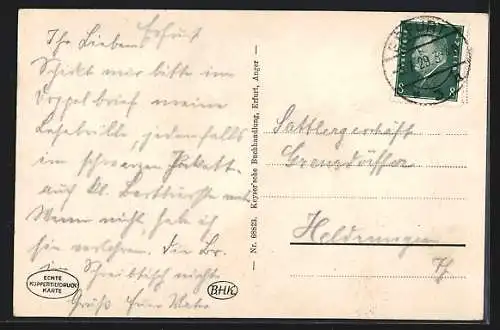 Erfurt
Ihr Lieben
Schickt mir bitte im
Doppelbrief meine
Lesebrille, jedenfalls
im schwarzen Jakett
auf kl.
Wenn nicht, hab ich
sie verloren. Die Br.
Schreibtisch nicht
Gruß Euer
ECHTE
KUPFERTIEFDRUCK
KARTE
BHK
Nr. 68823. Keyser'sche Buchhandlung, Erfurt, Anger
8 8
Sattlergeschäft
Grensdörffer
Heldrungen
Th.